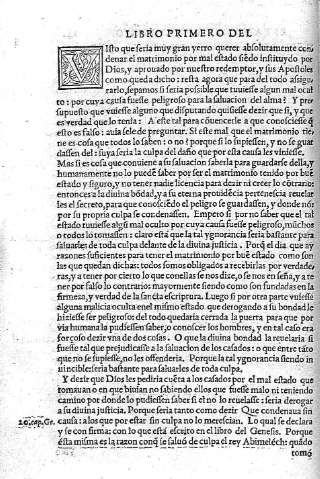 LIBRO PRIMERO DEL
VIsto que seria muy grán yerro querer absolutamente con
denar el matrimonio por mal estado siẽdo instituydo por
Dios, y aprouado por nuestro redemptor, y sus Apostoles
como queda dicho: resta agora que para del todo asigu-
rarlo, sepamos si seria posible que tuuiesse algun mal ocul
to: por cuya causa fuesse peligroso para la saluacion del alma? Y pre
supuesto que vuiesse alguno que disputando quisiesse dezir que si, y que
es verdad que lo tenia: A este tal para cõuencerle a que conosciesse q̃
esto es falso: auia sele de preguntar. Si este mal que el matrimonio tie-
ne es cosa que todos lo saben: o no? porque si lo supiessen, y no se guar
dassen del: suya seria la culpa del daño que por esta causa les viniesse.
Mas si es cosa que conuiene a su saluacion saberla para guardarse della, y
humanamente no lo puedẽ saber por ser el matrimonio tenido por buẽ
estado y siguro, y no tener nadie licencia para dezir ni creer lo cõtrario:
entonces a la diuina bõdad, y a su eterna prouidẽcia pertenescia reuelar
les el secreto, para que conosciẽdo el peligro se guardassen, y donde nó:
por su propia culpa se condenassen. Empero si por no saber que el tal
estado tuuiesse algũ mal oculto por cuya causa fuesse peligroso, muchos
o todos lo tomassen: claro està que la tal ygnorancia seria bastante para
saluarles de toda culpa delante de la diuina justicia. Porq̃ el dia que ay
razones suficientes para tener el matrimonio por buẽ estado como son
las que quedan dichas: todos somos obligados a recebirlas por verdade
ras, y a tener por cierto lo que conellas se nos dize, o se nos enseña, y a te
ner por falso lo contrario: mayormente siendo como son fundadas en la
firmeza, y verdad de la sancta escriptura. Luego si por otra parte vuiesse
alguna malicia oculta enel mismo estado que derogando a su bondad le
hiziesse ser peligroso: del todo quedaria cerrada la puerta para que por
via humana la pudiessen saber, o conoscer los hombres, y en tal caso era
forçoso dezir vna de dos cosas. O que la diuina bondad la reuelaria si
fuesse tal que prejudicasse a la saluacion de los casados: o que entre táto
que no se supiesse, no les offenderia. Porque la tal ygnorancia siendo in
uincible seria bastante para saluarles de toda culpa.
Y dezir que Dios les pediria cuẽta a los casados por el mal estado que
tomauan o en que biuian no sabiendo ellos que fuesse malo ni teniendo
camino por donde lo pudiessen saber si el no lo reuelasse: seria derogar
a su diuina justicia. Porque seria tanto como dezir Que condenaua sin
causa: a los que por estar sin culpa no lo merescian. Lo qual se declara
20. cap. Ge.
y se con firma: con lo que està escrito en el libro del Genesis. Porque
èsta misma es la razon conq̃ se saluó de culpa el rey Abimelèch: quãdo
tomó